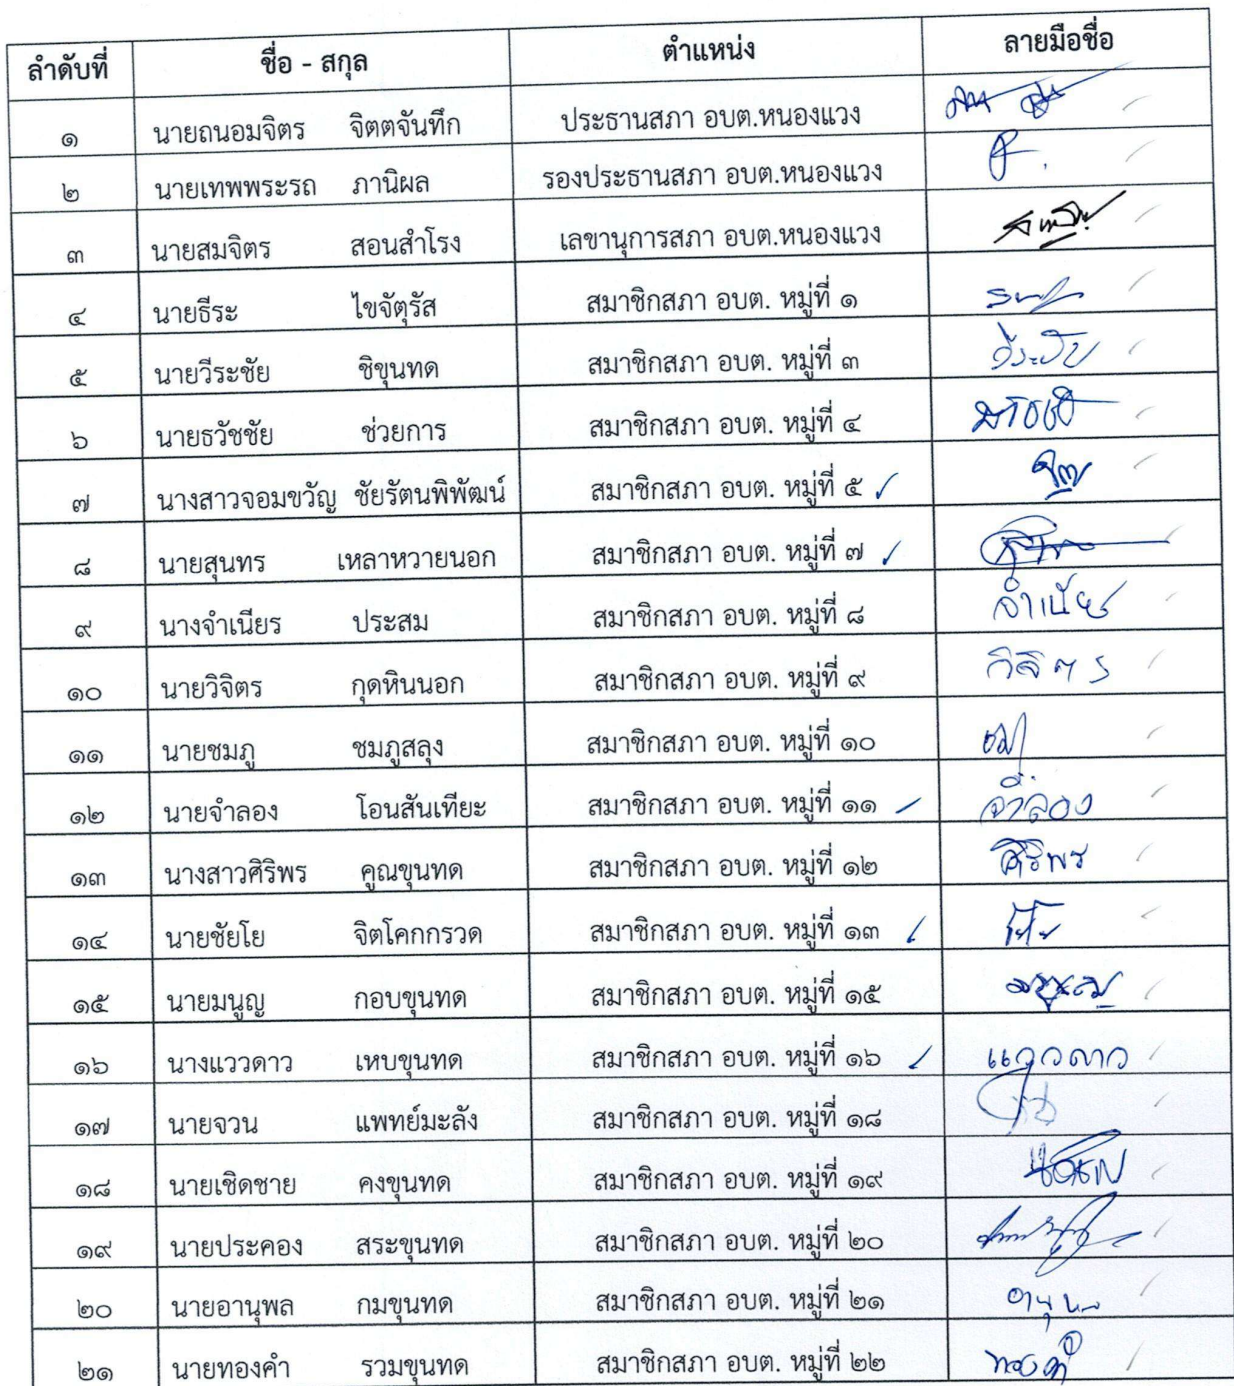 ลำดับที่ ชื่อ - สกุล ตำแหน่ง ลายมือชื่อ
๑ นายถนอมจิตร จิตตจันทึก ประธานสภา อบต.หนองแวง
๒ นายเทพพระรถ ภานิผล รองประธานสภา อบต.หนองแวง
๓ นายสมจิตร สอนสำโรง เลขานุการสภา อบต.หนองแวง
๔ นายธีระ ไขจัตุรัส สมาชิกสภา อบต. หมู่ที่ ๑
๕ นายวีระชัย ชิขุนทด สมาชิกสภา อบต. หมู่ที่ ๓
๖ นายธวัชชัย ช่วยการ สมาชิกสภา อบต. หมู่ที่ ๔
๗ นางสาวจอมขวัญ ชัยรัตนพิพัฒน์ สมาชิกสภา อบต. หมู่ที่ ๕
๘ นายสุนทร เหลาหวายนอก สมาชิกสภา อบต. หมู่ที่ ๗
๙ นางจำเนียร ประสม สมาชิกสภา อบต. หมู่ที่ ๘ จำเนียร
๑๐ นายวิจิตร กุดหินนอก สมาชิกสภา อบต. หมู่ที่ ๙ วิจิตร
๑๑ นายชมภู ชมภูสลุง สมาชิกสภา อบต. หมู่ที่ ๑๐
๑๒ นายจำลอง โอนสันเทียะ สมาชิกสภา อบต. หมู่ที่ ๑๑ จำลอง
๑๓ นางสาวศิริพร คูณขุนทด สมาชิกสภา อบต. หมู่ที่ ๑๒ ศิริพร
๑๔ นายชัยโย จิตโคกกรวด สมาชิกสภา อบต. หมู่ที่ ๑๓
๑๕ นายมนูญ กอบขุนทด สมาชิกสภา อบต. หมู่ที่ ๑๕
๑๖ นางแววดาว เหบขุนทด สมาชิกสภา อบต. หมู่ที่ ๑๖ แววดาว
๑๗ นายจวน แพทย์มะลัง สมาชิกสภา อบต. หมู่ที่ ๑๘
๑๘ นายเชิดชาย คงขุนทด สมาชิกสภา อบต. หมู่ที่ ๑๙
๑๙ นายประคอง สระขุนทด สมาชิกสภา อบต. หมู่ที่ ๒๐
๒๐ นายอานุพล กมขุนทด สมาชิกสภา อบต. หมู่ที่ ๒๑
๒๑ นายทองคำ รวมขุนทด สมาชิกสภา อบต. หมู่ที่ ๒๒ ทองคำ